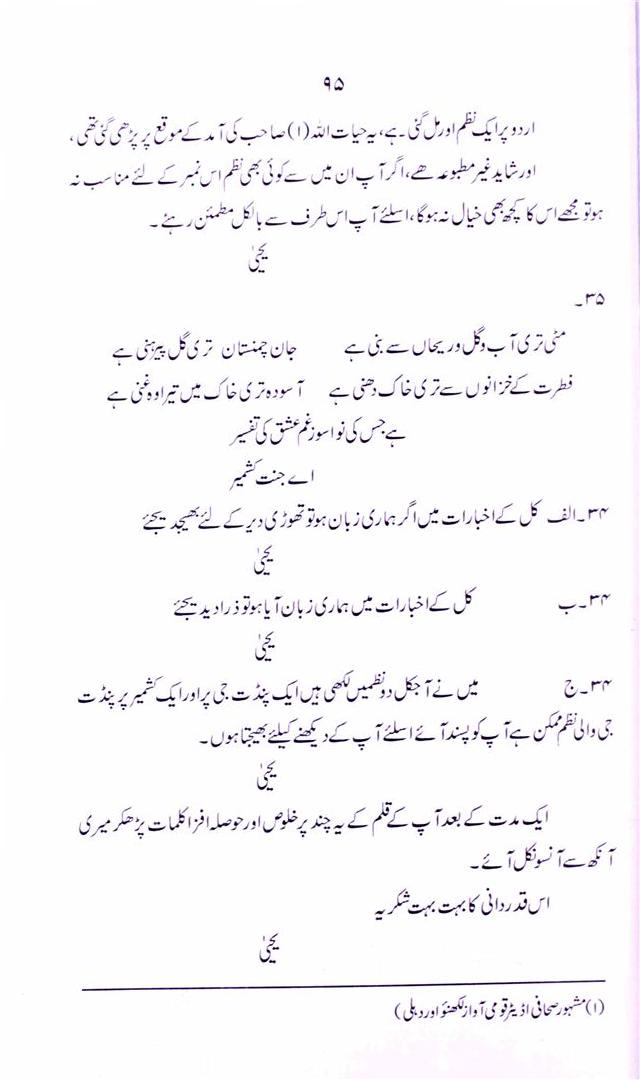 ۹۵
اردو پر ایک نظم اور مل گئی۔ ہے، یہ حیات اللہ (۱) صاحب کی آمد کے موقع پر پڑھی گئی تھی،
اور شاید غیر مطبوعہ ھے، اگر آپ ان میں سے کوئی بھی نظم اس نمبر کے لئے مناسب نہ
ہو تو مجھے اس کا کچھ بھی خیال نہ ہوگا، اسلئے آپ اس طرف سے بالکل مطمئن رہئے۔
یحیٰی
۳۵۔
مٹی تری آب و گل و ریحاں سے بنی ہے جان چمنستان تری گل پیرہنی ہے
فطرت کے خزانوں سے تری خاک دھنی ہے آسودہ تری خاک میں تیرا وہ غنی ہے
ہے جس کی نوا سوز غم عشق کی تفسیر
اے جنت کشمیر
۳۴۔الف کل کے اخبارات میں اگر ہماری زبان ہو تو تھوڑی دیر کے لئے بھیجدیجئے
یحیٰی
۳۴۔ب کل کے اخبارات میں ہماری زبان آیا ہو تو ذرا دیدیجئے
یحیٰی
۳۴۔ج میں نے آجکل دو نظمیں لکھی ہیں ایک پنڈت جی پر اور ایک کشمیر پر پنڈت
جی والی نظم ممکن ہے آپ کو پسند آئے اسلئے آپ کے دیکھنے کیلئے بھیجتا ہوں۔
یحیٰی
ایک مدت کے بعد آپ کے قلم کے یہ چند پر خلوص اور حوصلہ افزا کلمات پڑھکر میری
آنکھ سے آنسو نکل آئے۔
اس قدردانی کا بہت بہت شکریہ
یحیٰی
(۱) مشہور صحافی اڈیٹر قومی آواز لکھنؤ اور دہلی)